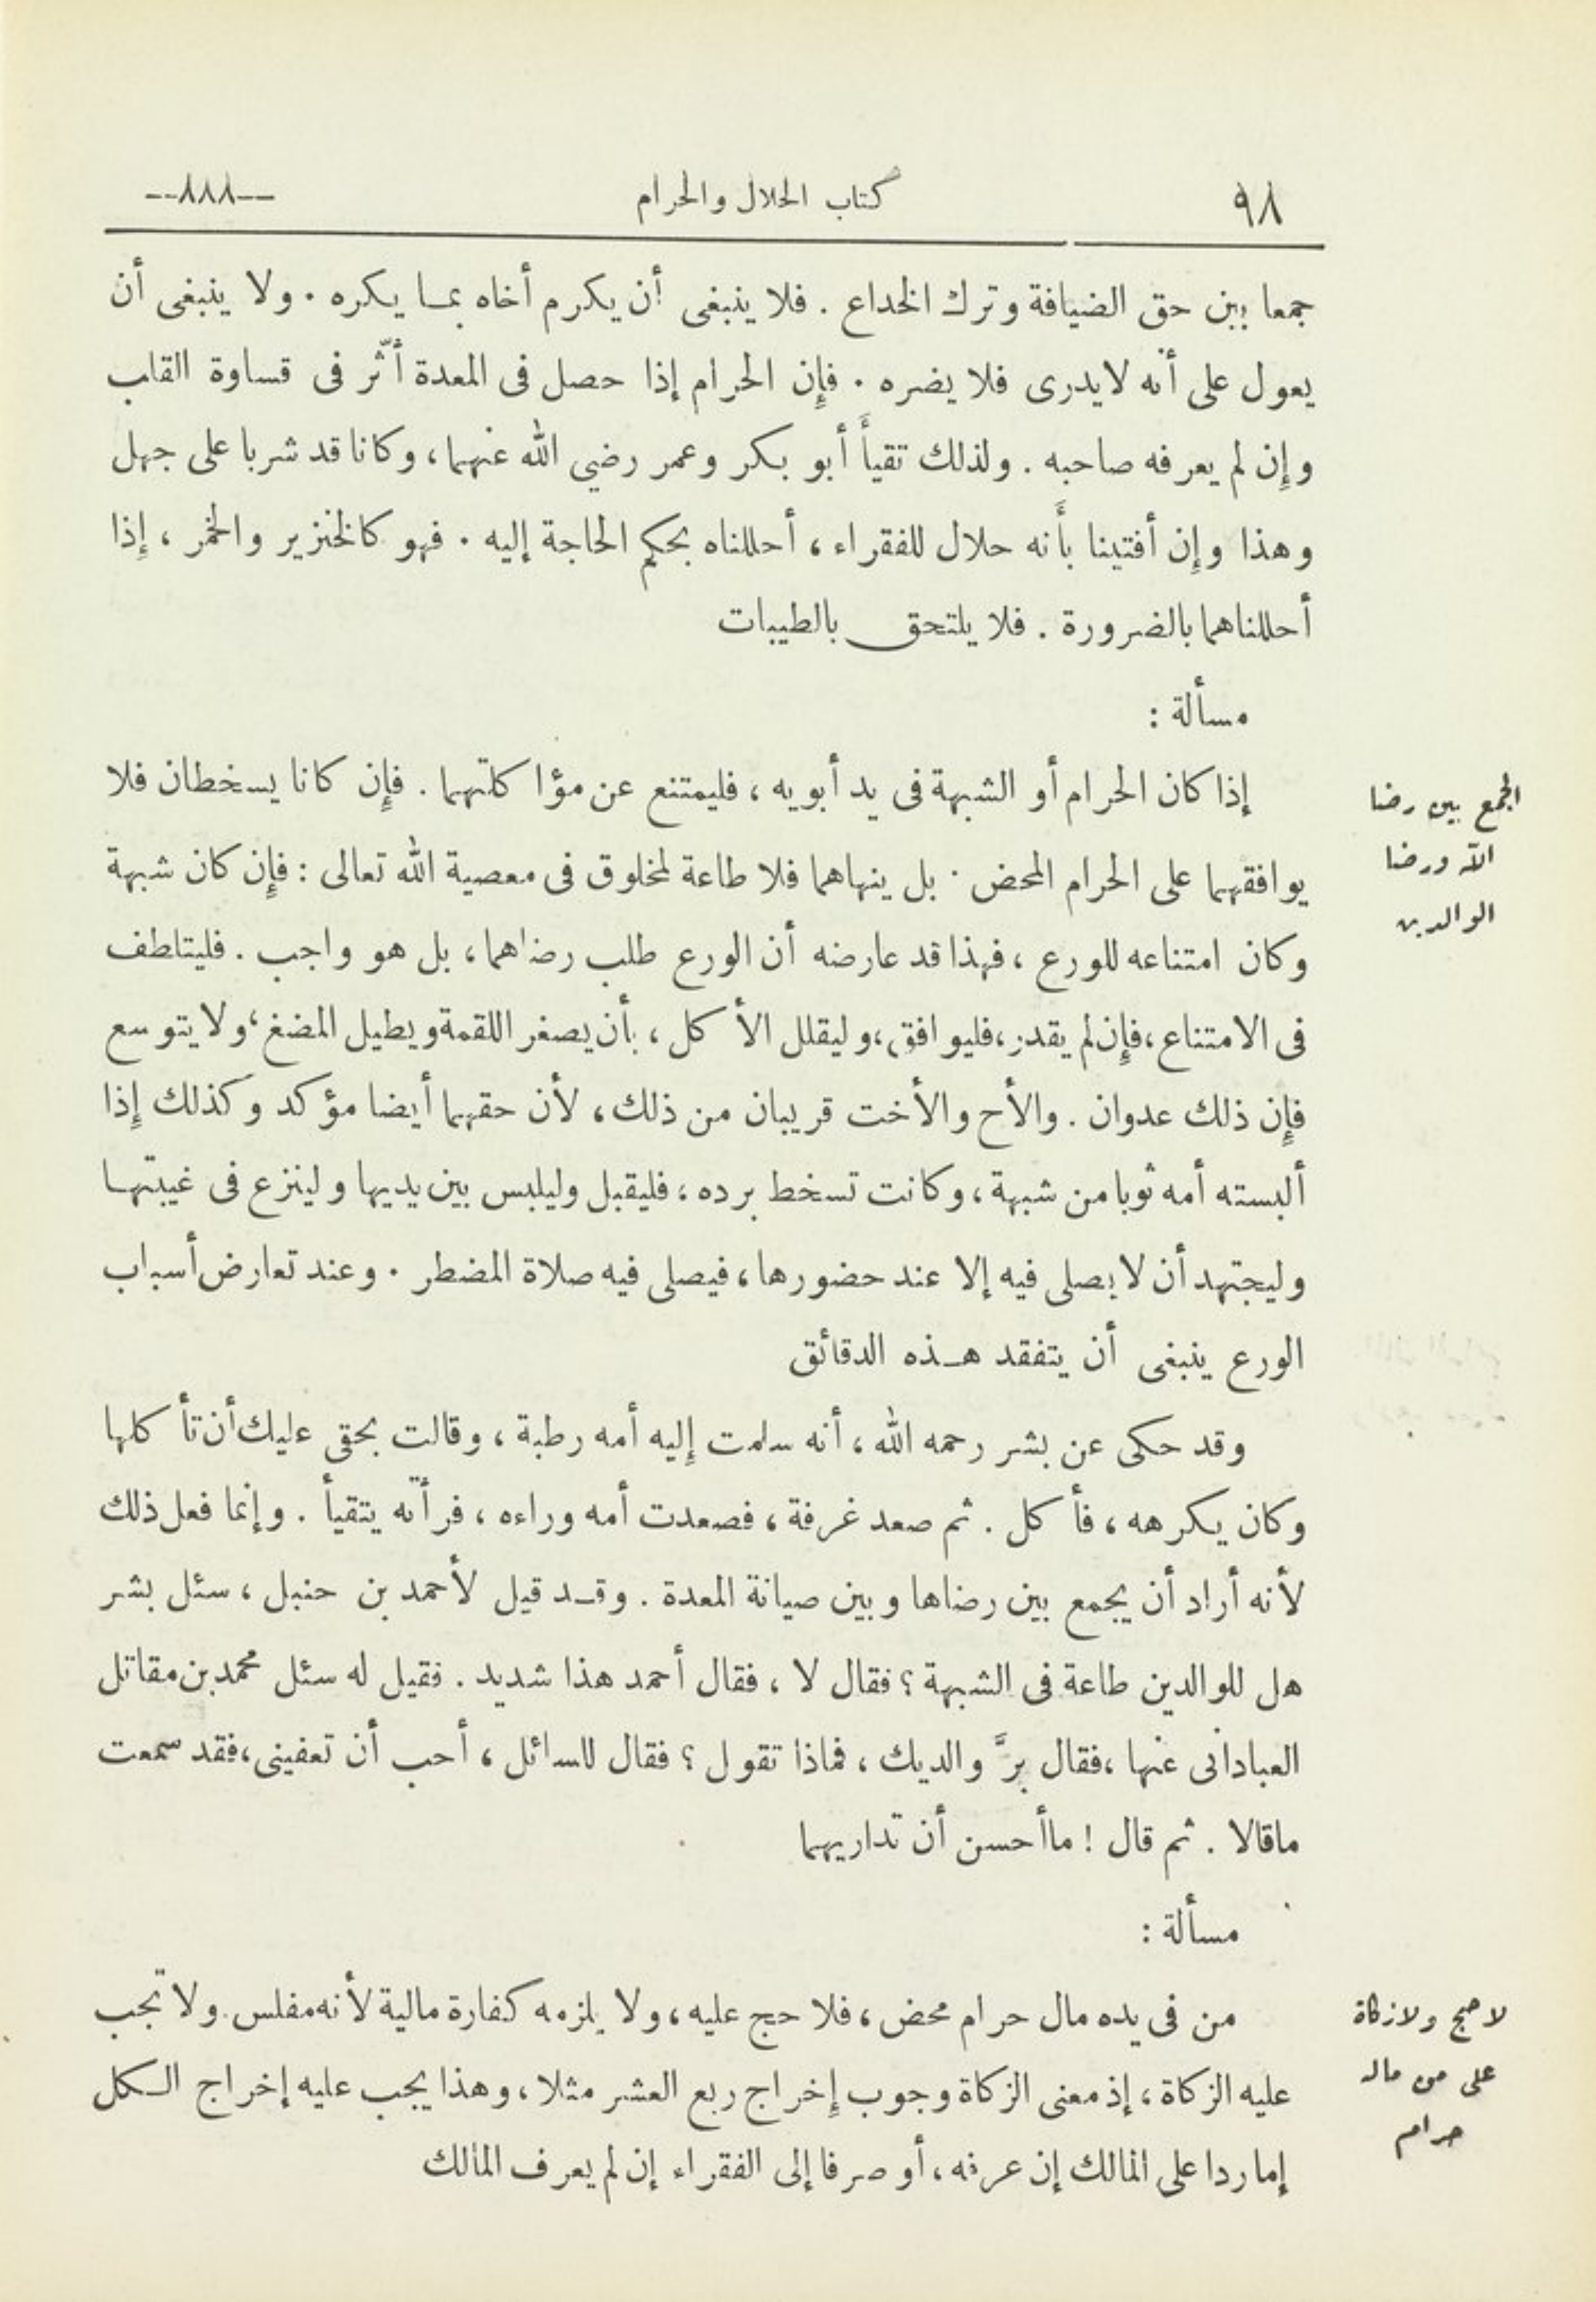 ٩٨ كتاب الحلال والحرام --٨٨٨--
جمعا بين حق الضيافة وترك الخداع . فلا ينبغى أن يكرم أخاه بما يكره . ولا ينبغى أن
يعول على أنه لا يدرى فلا يضره . فإن الحرام إذا حصل فى المعدة أثّر فى قساوة القلب
وإن لم يعرفه صاحبه . ولذلك تقيأ أبو بكر وعمر رضي الله عنهما، وكانا قد شربا على جهل
وهذا وإن أفتينا بأنه حلال للفقراء ، أحللناه بحكم الحاجة إليه . فهو كالخنزير والخمر ، إذا
أحللناهما بالضرورة . فلا يلتحق بالطيبات
مسألة :
إذا كان الحرام أو الشبهة فى يد أبويه ، فليمتنع عن مؤاكلتهما . فإن كانا يسخطان فلا
يوافقهما على الحرام المحض . بل ينهاهما فلا طاعة لمخلوق فى معصية الله تعالى : فإن كان شبهة
وكان امتناعه للورع ، فهذا قد عارضه أن الورع طلب رضاهما ، بل هو واجب . فليتلطف
فى الامتناع ، فإن لم يقدر ، فليوافق ، وليقلل الأكل ، بأن يصغر اللقمة ويطيل المضغ ، ولا يتوسع
فإن ذلك عدوان . والأخ والأخت قريبان من ذلك ، لأن حقهما أيضا مؤكد وكذلك إذا
ألبسته أمه ثوبا من شبهة ، وكانت تسخط برده ، فليقبل وليلبس بين يديها ولينزع فى غيبتها
وليجتهد أن لا يصلى فيه إلا عند حضورها ، فيصلى فيه صلاة المضطر . وعند تعارض أسباب
الورع ينبغى أن يتفقد هذه الدقائق
وقد حكى عن بشر رحمه الله ، أنه سلمت إليه أمه رطبة ، وقالت بحقى عليك أن تأكلها
وكان يكرهه ، فأكل . ثم صعد غرفة ، فصعدت أمه وراءه ، فرأته يتقيأ . وإنما فعل ذلك
لأنه أراد أن يجمع بين رضاها وبين صيانة المعدة . وقد قيل لأحمد بن حنبل ، سئل بشر
هل للوالدين طاعة فى الشبهة ؟ فقال لا ، فقال أحمد هذا شديد . فقيل له سئل محمد بن مقاتل
العبادانى عنها ، فقال برَّ والديك ، فماذا تقول ؟ فقال للسائل ، أحب أن تعفينى ، فقد سمعت
ماقالا . ثم قال ! ما أحسن أن تداريهما
مسألة :
من فى يده مال حرام محض ، فلا حج عليه ، ولا يلزمه كفارة مالية لأنه مفلس . ولا تجب
عليه الزكاة ، إذ معنى الزكاة وجوب إخراج ربع العشر مثلا ، وهذا يجب عليه إخراج الكل
إما ردا على المالك إن عرفه ، أو صرفا إلى الفقراء إن لم يعرف المالك
الجمع بين رضا
الله ورضا
الوالدين
لا حج ولا زكاة
على من ماله
حرام